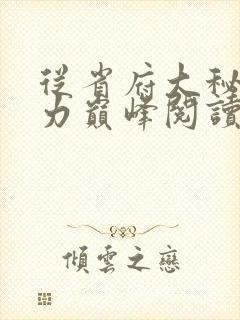 從省府大秘
力巔峰閱讀
傾雲之戀